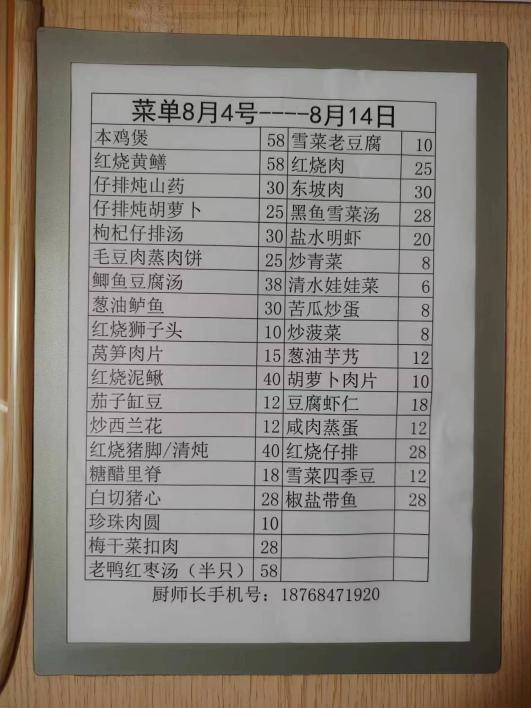 菜单8月4号----8月14日
本鸡煲 58 雪菜老豆腐 10
红烧黄鳝 58 红烧肉 25
仔排炖山药 30 东坡肉 30
仔排炖胡萝卜 25 黑鱼雪菜汤 28
枸杞仔排汤 30 盐水明虾 20
毛豆肉蒸肉饼 25 炒青菜 8
鲫鱼豆腐汤 38 清水娃娃菜 6
葱油鲈鱼 30 苦瓜炒蛋 8
红烧狮子头 10 炒菠菜 8
莴笋肉片 15 葱油芋艿 12
红烧泥鳅 40 胡萝卜肉片 10
茄子缸豆 12 豆腐虾仁 18
炒西兰花 12 咸肉蒸蛋 12
红烧猪脚/清炖 40 红烧仔排 28
糖醋里脊 18 雪菜四季豆 12
白切猪心 28 椒盐带鱼 28
珍珠肉圆 10
梅干菜扣肉 28
老鸭红枣汤（半只） 58
厨师长手机号：18768471920